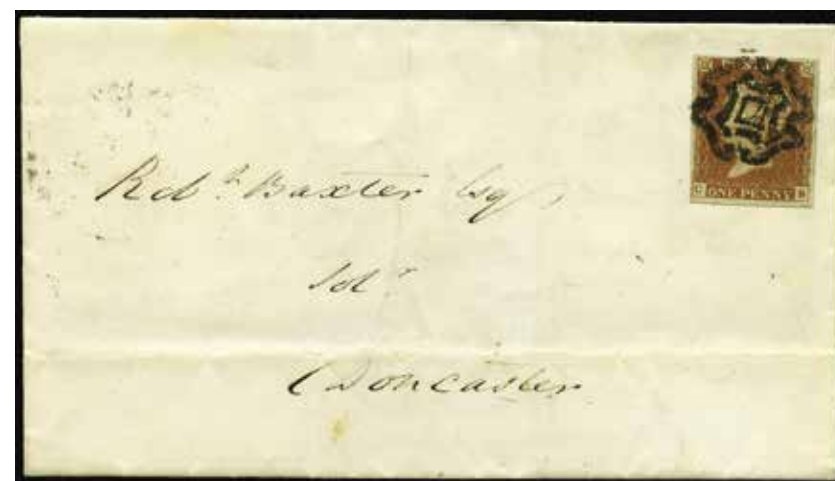 ONE PENNY
Robt. Baxter Esqr
Solr
Doncaster